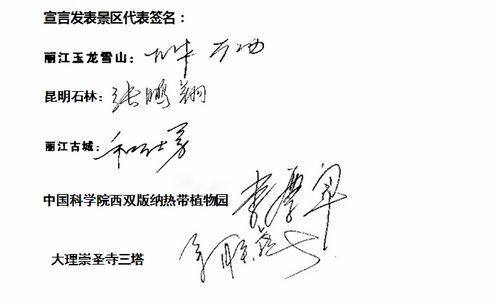 宣言发表景区代表签名：
丽江玉龙雪山：
昆明石林：张鹏翔
丽江古城：和仕勇
中国科学院西双版纳热带植物园
大理崇圣寺三塔